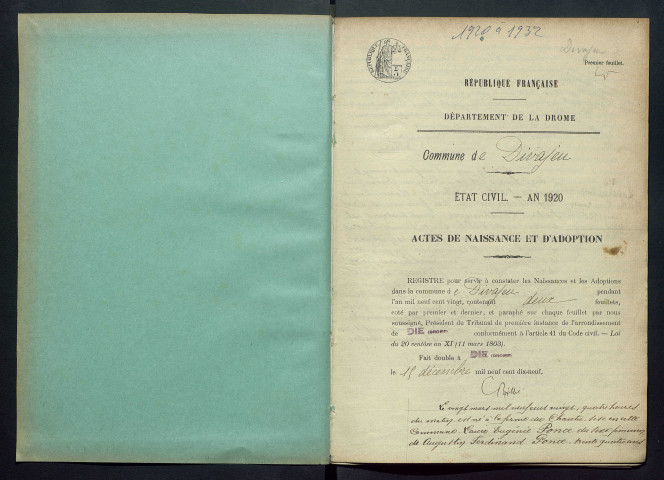 1920 à 1932
Divajeu
Premier feuillet.
RÉPUBLIQUE FRANÇAISE
RÉPUBLIQUE FRANÇAISE
DÉPARTEMENT DE LA DROME
Commune de Divajeu
ÉTAT CIVIL. — AN 1920
ACTES DE NAISSANCE ET D'ADOPTION
REGISTRE pour servir à constater les Naissances et les Adoptions
dans la commune de Divajeu pendant
l'an mil neuf cent vingt, contenant deux feuillets,
coté par premier et dernier, et paraphé sur chaque feuillet par nous
soussigné, Président du Tribunal de première instance de l'arrondissement
de DIE conformément à l'article 41 du Code civil. — Loi
du 20 ventôse an XI (11 mars 1803).
Fait double à DIE
le 15 décembre mil neuf cent dix-neuf.
Le vingt mars mil neuf cent vingt, quatre heures
du matin, est née à la ferme des sise en cette
commune, Laure Eugénie Ponce du sexe féminin
de Augustin Ferdinand Ponce, trente quatre ans